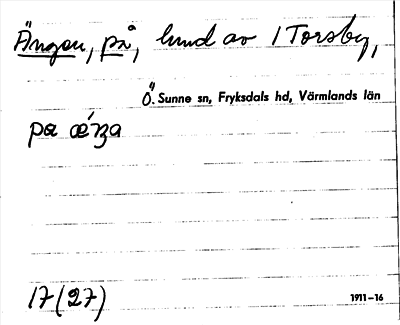 Ängen, på, hmd av 1 Torsby,
Ö. Sunne sn, Fryksdals hd, Värmlands län
pɑ
17(27)
1911–16